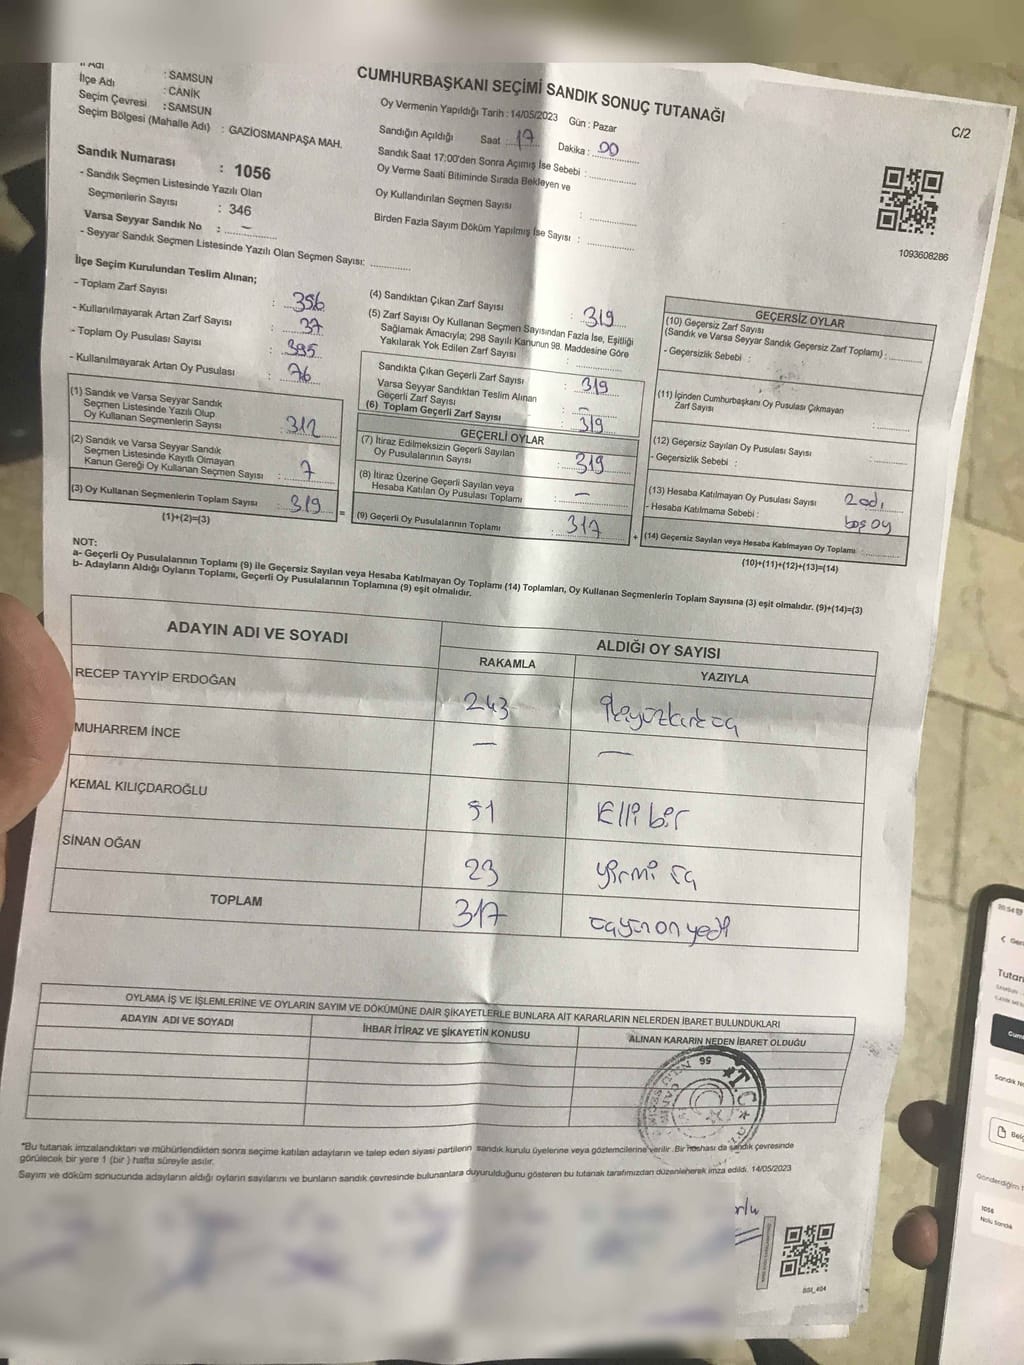 İl Adı : SAMSUN
İlçe Adı : CANİK
Seçim Çevresi : SAMSUN
Seçim Bölgesi (Mahalle Adı) : GAZİOSMANPAŞA MAH.
Sandık Numarası : 1056
- Sandık Seçmen Listesinde Yazılı Olan
Seçmenlerin Sayısı : 346
Varsa Seyyar Sandık No : —
- Seyyar Sandık Seçmen Listesinde Yazılı Olan Seçmen Sayısı:
CUMHURBAŞKANI SEÇİMİ SANDIK SONUÇ TUTANAĞI
Oy Vermenin Yapıldığı Tarih : 14/05/2023 Gün : Pazar
Sandığın Açıldığı Saat : 17 Dakika : 00
Sandık Saat 17:00'den Sonra Açılmış İse Sebebi :
Oy Verme Saati Bitiminde Sırada Bekleyen ve
Oy Kullandırılan Seçmen Sayısı :
Birden Fazla Sayım Döküm Yapılmış İse Sayısı :
C/2
1093608286
İlçe Seçim Kurulundan Teslim Alınan;
- Toplam Zarf Sayısı : 356
- Kullanılmayarak Artan Zarf Sayısı : 37
- Toplam Oy Pusulası Sayısı : 395
- Kullanılmayarak Artan Oy Pusulası : 76
(1) Sandık ve Varsa Seyyar Sandık
Seçmen Listesinde Yazılı Olup
Oy Kullanan Seçmenlerin Sayısı : 312
(2) Sandık ve Varsa Seyyar Sandık
Seçmen Listesinde Kayıtlı Olmayan
Kanun Gereği Oy Kullanan Seçmen Sayısı : 7
(3) Oy Kullanan Seçmenlerin Toplam Sayısı : 319
(1)+(2)=(3)
(4) Sandıktan Çıkan Zarf Sayısı : 319
(5) Zarf Sayısı Oy Kullanan Seçmen Sayısından Fazla İse, Eşitliği
Sağlamak Amacıyla; 298 Sayılı Kanunun 98. Maddesine Göre
Yakılarak Yok Edilen Zarf Sayısı :
Sandıkta Çıkan Geçerli Zarf Sayısı : 319
Varsa Seyyar Sandıktan Teslim Alınan
Geçerli Zarf Sayısı : —
(6) Toplam Geçerli Zarf Sayısı : 319
GEÇERLİ OYLAR
(7) İtiraz Edilmeksizin Geçerli Sayılan
Oy Pusulalarının Sayısı : 319
(8) İtiraz Üzerine Geçerli Sayılan veya
Hesaba Katılan Oy Pusulası Toplamı : —
(9) Geçerli Oy Pusulalarının Toplamı : 317
=
+
GEÇERSİZ OYLAR
(10) Geçersiz Zarf Sayısı
(Sandık ve Varsa Seyyar Sandık Geçersiz Zarf Toplamı) :
- Geçersizlik Sebebi :
(11) İçinden Cumhurbaşkanı Oy Pusulası Çıkmayan
Zarf Sayısı :
(12) Geçersiz Sayılan Oy Pusulası Sayısı :
- Geçersizlik Sebebi :
(13) Hesaba Katılmayan Oy Pusulası Sayısı 2 adı
- Hesaba Katılmama Sebebi : boş oy
(14) Geçersiz Sayılan veya Hesaba Katılmayan Oy Toplamı :
(10)+(11)+(12)+(13)=(14)
NOT:
a- Geçerli Oy Pusulalarının Toplamı (9) ile Geçersiz Sayılan veya Hesaba Katılmayan Oy Toplamı (14) Toplamları, Oy Kullanan Seçmenlerin Toplam Sayısına (3) eşit olmalıdır. (9)+(14)=(3)
b- Adayların Aldığı Oyların Toplamı, Geçerli Oy Pusulalarının Toplamına (9) eşit olmalıdır.
ADAYIN ADI VE SOYADI ALDIĞI OY SAYISI
RAKAMLA YAZIYLA
RECEP TAYYİP ERDOĞAN 243 ikiyüzkırk üç
MUHARREM İNCE — —
KEMAL KILIÇDAROĞLU 51 Elli bir
SİNAN OĞAN 23 yirmi üç
TOPLAM 317 üçyüz on yedi
OYLAMA İŞ VE İŞLEMLERİNE VE OYLARIN SAYIM VE DÖKÜMÜNE DAİR ŞİKAYETLERLE BUNLARA AİT KARARLARIN NELERDEN İBARET BULUNDUKLARI
ADAYIN ADI VE SOYADI İHBAR İTİRAZ VE ŞİKAYETİN KONUSU ALINAN KARARIN NEDEN İBARET OLDUĞU
T.C.
"Bu tutanak imzalandıktan ve mühürlendikten sonra seçime katılan adayların ve talep eden siyasi partilerin sandık kurulu üyelerine veya gözlemcilerine verilir. Bir nüshası da sandık çevresinde
görülecek bir yere 1 (bir) hafta süreyle asılır.
Sayım ve döküm sonucunda adayların aldığı oyların sayılarını ve bunların sandık çevresinde bulunanlara duyurulduğunu gösteren bu tutanak tarafımızdan düzenlenerek imza edildi. 14/05/2023
BSI_404
20:54
Tutan
Sandık N
Belg
Gönderdiğim T
1056
Nolu Sandık